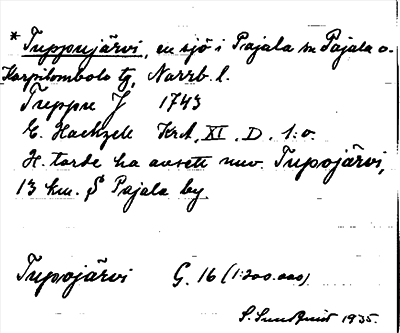 * Tuppujärvi, en sjö i Pajala sn Pajala o.
Korpilombolo tg, Norrb. l.
Tuppu J 1743
E. Hackzell Krt. XI. D. 1. o.
H. torde ha avsett nuv. Tupojärvi,
13 km. S Pajala by.
Tupojärvi G. 16 (1:200.000)
S. Sundquist 1935.